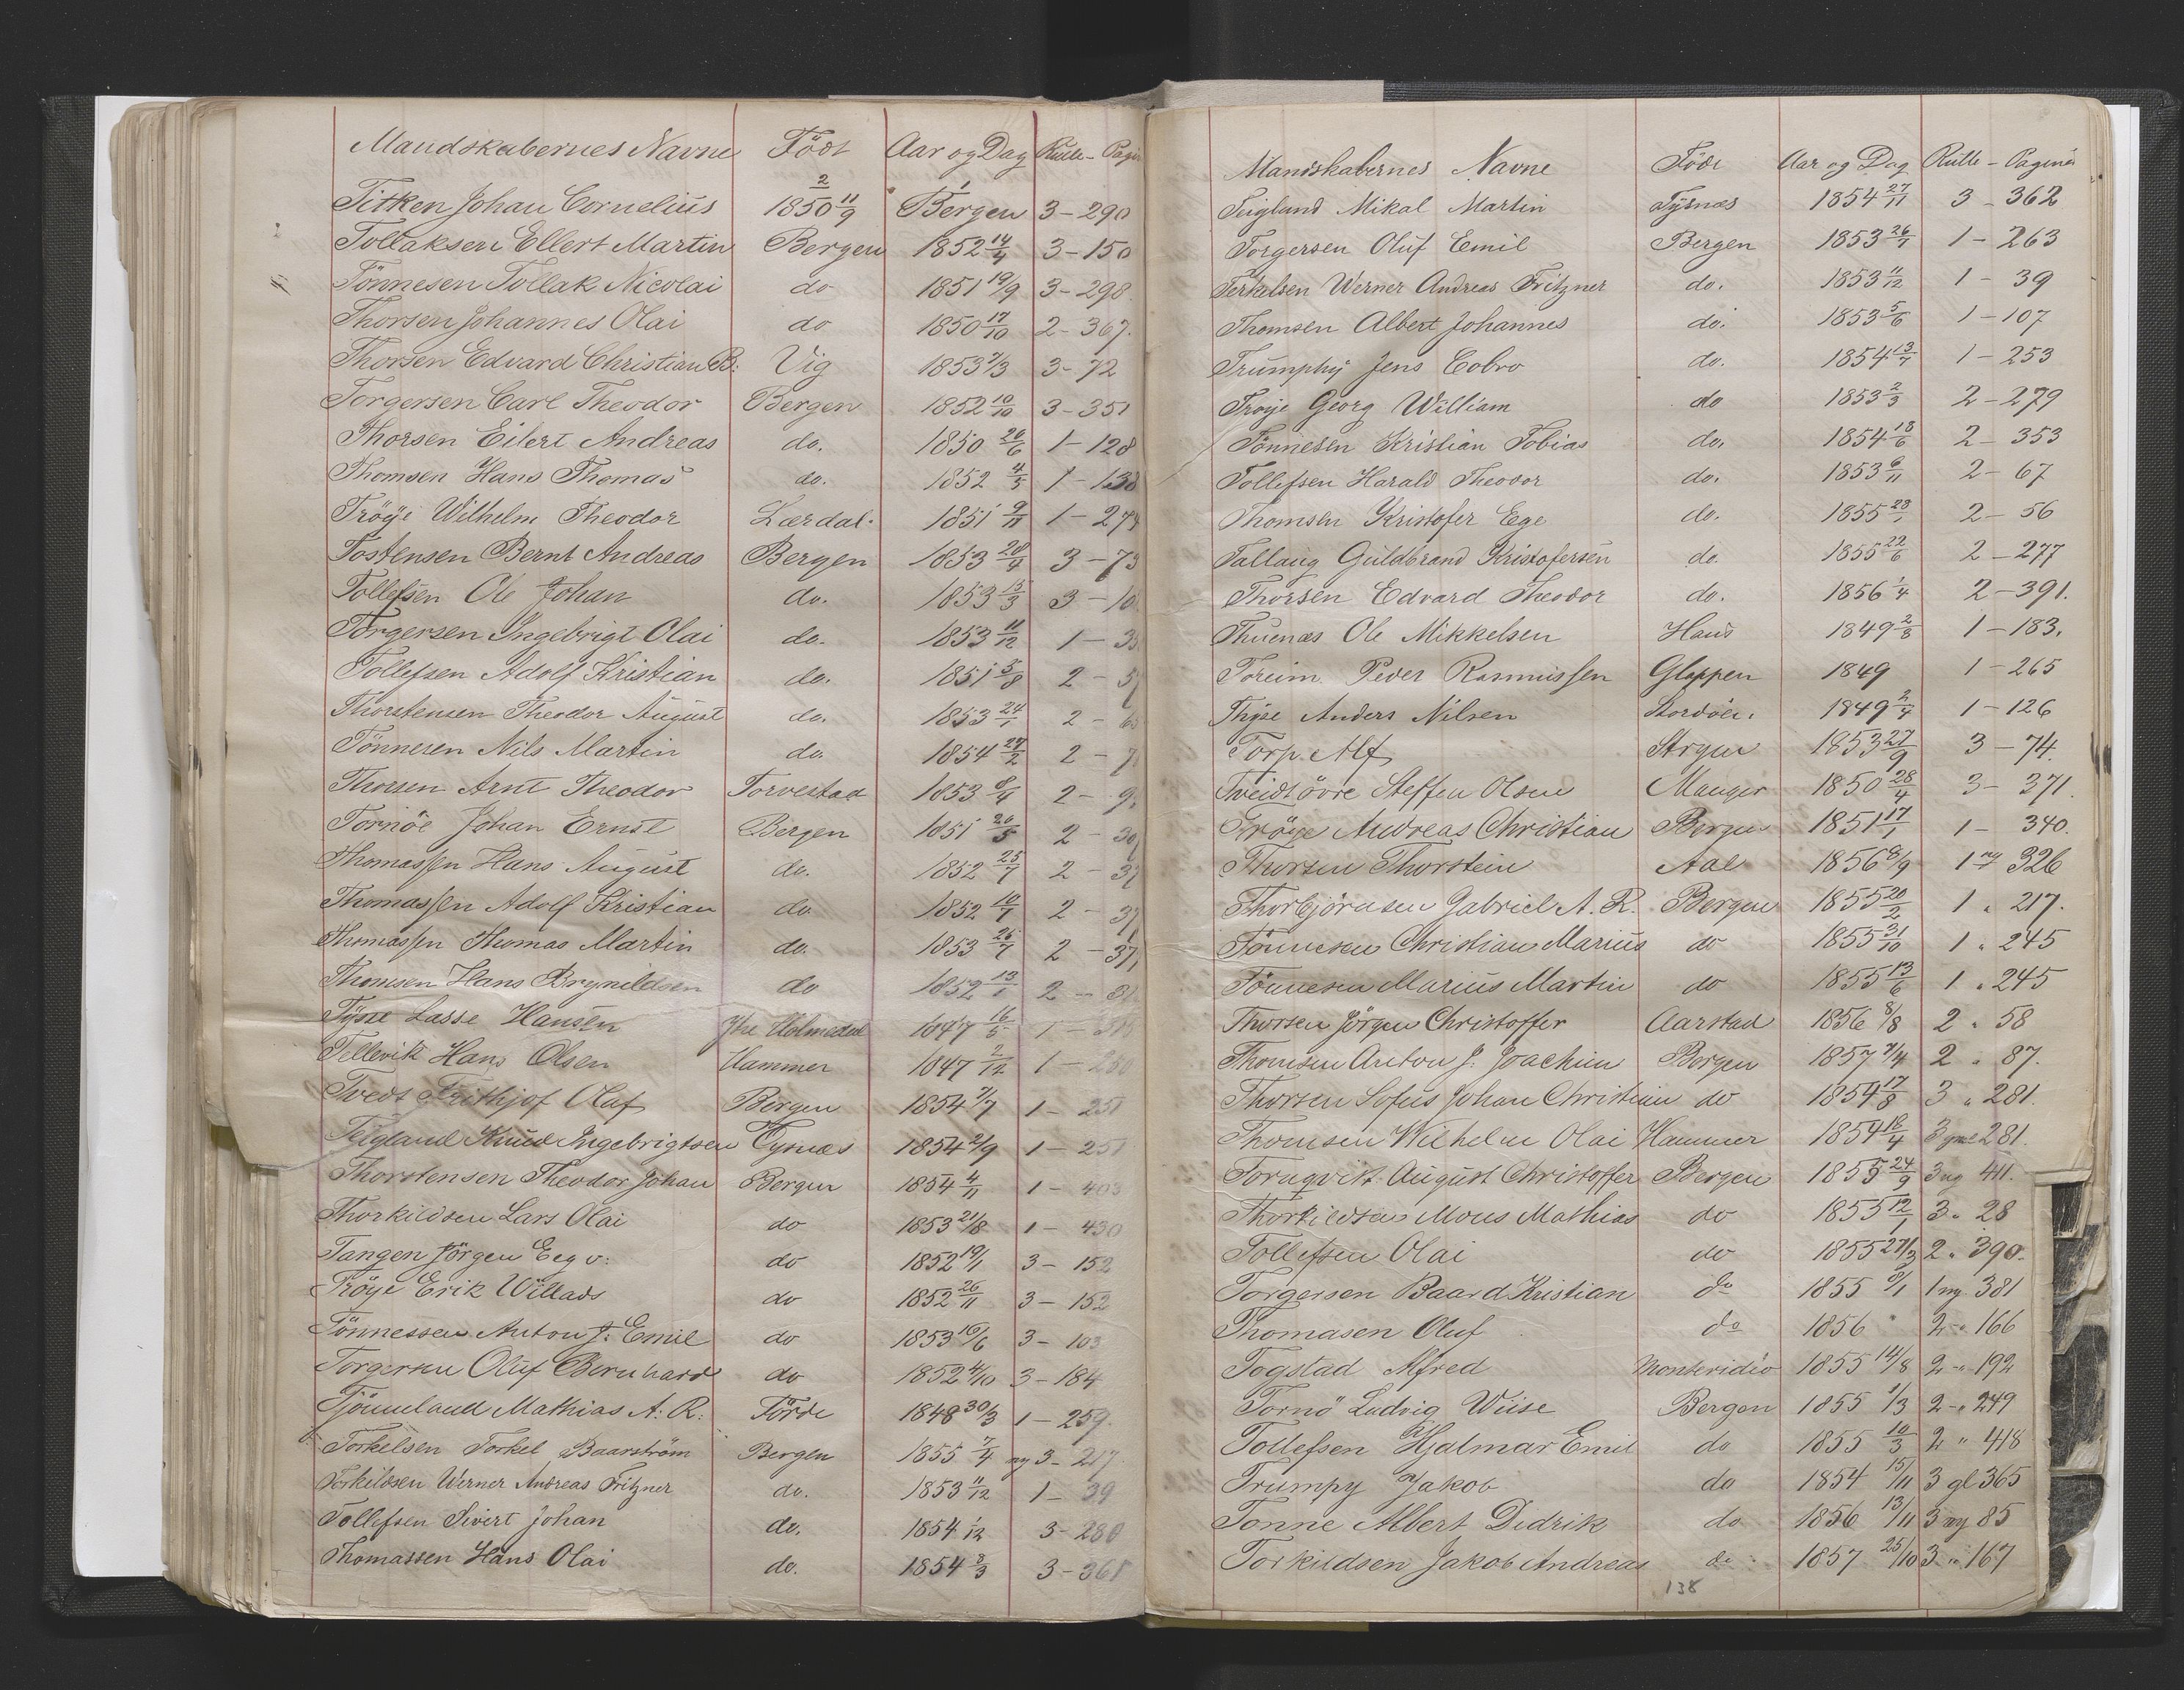 Mandskabernes Navne Födt Aar og Dag Rulle - Pagina
2 1
Titken Johan Cornelius 1850 11/9 Bergen 3-290
Tollaksen Ellert Martin Bergen 1852 14/4 3-150
Tönnesen Tollak Nicolai do 1851 19/9 3-298
Thorsen Johannes Olai do 1850 17/10 2-367.
Thorsen Edvard Christian B: Vig 1853 7/3 3-72
Torgersen Carl Theodor Bergen 1852 10/10 3-351
Thorsen Eilert Andreas do. 1850 26/6 1-128
Thomsen Hans Thomas do. 1852 4/5 1-138
Tröye Wilhelm Theodor Lærdal. 1851 9/11 1-274
Tostensen Bernt Andreas Bergen 1853 28/4 3-73
Tollefsen Ole Johan do. 1853 15/3 3-10
Torgersen Ingebrigt Olai do. 1853 11/12 1-3
Tollefsen Adolf Kristian do. 1851 5/8 2-5
Thorstensen Theodor August do. 1853 24/1 2-6
Tönnesen Nils Martin do. 1854 27/2 2-7
Thorsen Arnt Theodor Torvestad 1853 8/4 2-9
Tornöe Johan Ernst Bergen 1851 26/5 2-30
Thomassen Hans August do. 1852 25/7 2-37
Thomassen Adolf Kristian do. 1852 10/1 2-37
Thomassen Thomas Martin do. 1853 26/7 2-37
Thomsen Hans Brynildsen do 1852 13/1 2-3
Tysse Lasse Hansen Ytre Holmedal 1847 16/5 1-3
Tellevik Hans Olsen Hammer 1847 2/12 1-280
Tvedt Frithjof Olaf Bergen 1854 7/7 1-251
Teigland Knud Ingebrigtsen Tysnæs 1854 2/9 1-251
Thorstensen Theodor Johan Bergen 1854 4/11 1-403
Thorkildsen Lars Olai do 1853 21/8 1-430
Tangen Jörgen Eeg v: do 1852 19/1 3-152
Tröye Erik Willads do 1852 26/11 3-152
Tönnessen Anton J. Emil do 1853 16/6 3-103
Torgersen Oluf Bernhard do 1852 4/10 3-184
Tjönneland Mathias A: R: Förde 1848 30/3 1-259.
Torkelsen Torkel Baarström Bergen 1855 7/4 ny 3-217
Torkildsen Werner Andreas Fritzner do. 1853 11/12 1-39
Tollefsen Sivert Johan do. 1854 1/12 3-280
Thomassen Hans Olai do. 1854 8/3 3-361
Mandskabernes Navne Födt Aar og Dag Rulle - Pagina
Teigland Mikal Martin Tysnæs 1854 27/11 3-362
Torgersen Oluf Emil Bergen 1853 26/1 1-263
Terkelsen Werner Andreas Fritzner do. 1853 11/12 1-39
Thomsen Albert Johannes do. 1853 5/6 1-107
Trumphy Jens Cobro do. 1854 13/7 1-253
Troye Georg William do 1853 2/3 2-279
Tönnesen Kristian Tobias do. 1854 18/6 2-353
Tollefsen Harald Theodor do. 1853 6/11 2-67
Thomsen Kristofer Ege do. 1855 28/1 2-56
Tallaug Guldbrand Kristofersen do. 1855 22/6 2-277
Thorsen Edvard Theodor do. 1856 1/4 2-391.
Thuenæs Ole Mikkelsen Haus 1849 2/8 1-183.
Toreim Peder Rasmussen Gloppen 1849 1-265
Thyse Anders Nilsen Stordöen. 1849 2/4 1-126
Torp. Alf Stryn 1853 27/9 3-74.
Tveidt övre Steffen Olsen Manger 1850 28/4 3-371.
Tröye Andreas Christian Bergen 1851 17/1 1-340.
Thorsen Thorstein Aal 1856 8/9 1 ny 326
Thorbjörnsen Gabriel A. R. Bergen 1855 20/2 1 " 217.
Tönnesen Christian Marius do 1855 31/10 1 " 245
Tönnesen Marius Martin do 1855 13/6 1 " 245
Thorsen Jörgen Christoffer Aarstad 1856 8/8 2 " 58
Thomsen Anton J. Joachim Bergen 1857 7/4 2 " 87.
Thorsen Sofus Johan Christian do 1854 17/8 3 " 281.
Thomsen Wilhelm Olai Hammer 1854 18/4 3 gml 281.
Tornqvist August Christoffer Bergen 1855 24/9 3 ny 411.
Thorkildsen Mons Mathias do 1855 12/1 3 " 28
Tollefsen Olai do 1855 27/3 2 " 390.
Torgersen Baard Kristian do 1855 9/1 1 ny 381
Thomasen Oluf do 1856 " 2 - " 166
Togstad Alfred Montevidio 1855 14/8 2 - " 192
Tornö Ludvig Wiise Bergen 1855 1/3 2 - " 249
Tollefsen Hjalmar Emil do 1855 10/3 2 " 418
Trumpy Jakob do 1854 15/11 3 gl 365
Tonne Albert Didrik do 1856 13/11 3 ny 85
Torkildsen Jakob Andreas do 1857 25/10 3 " 167
138